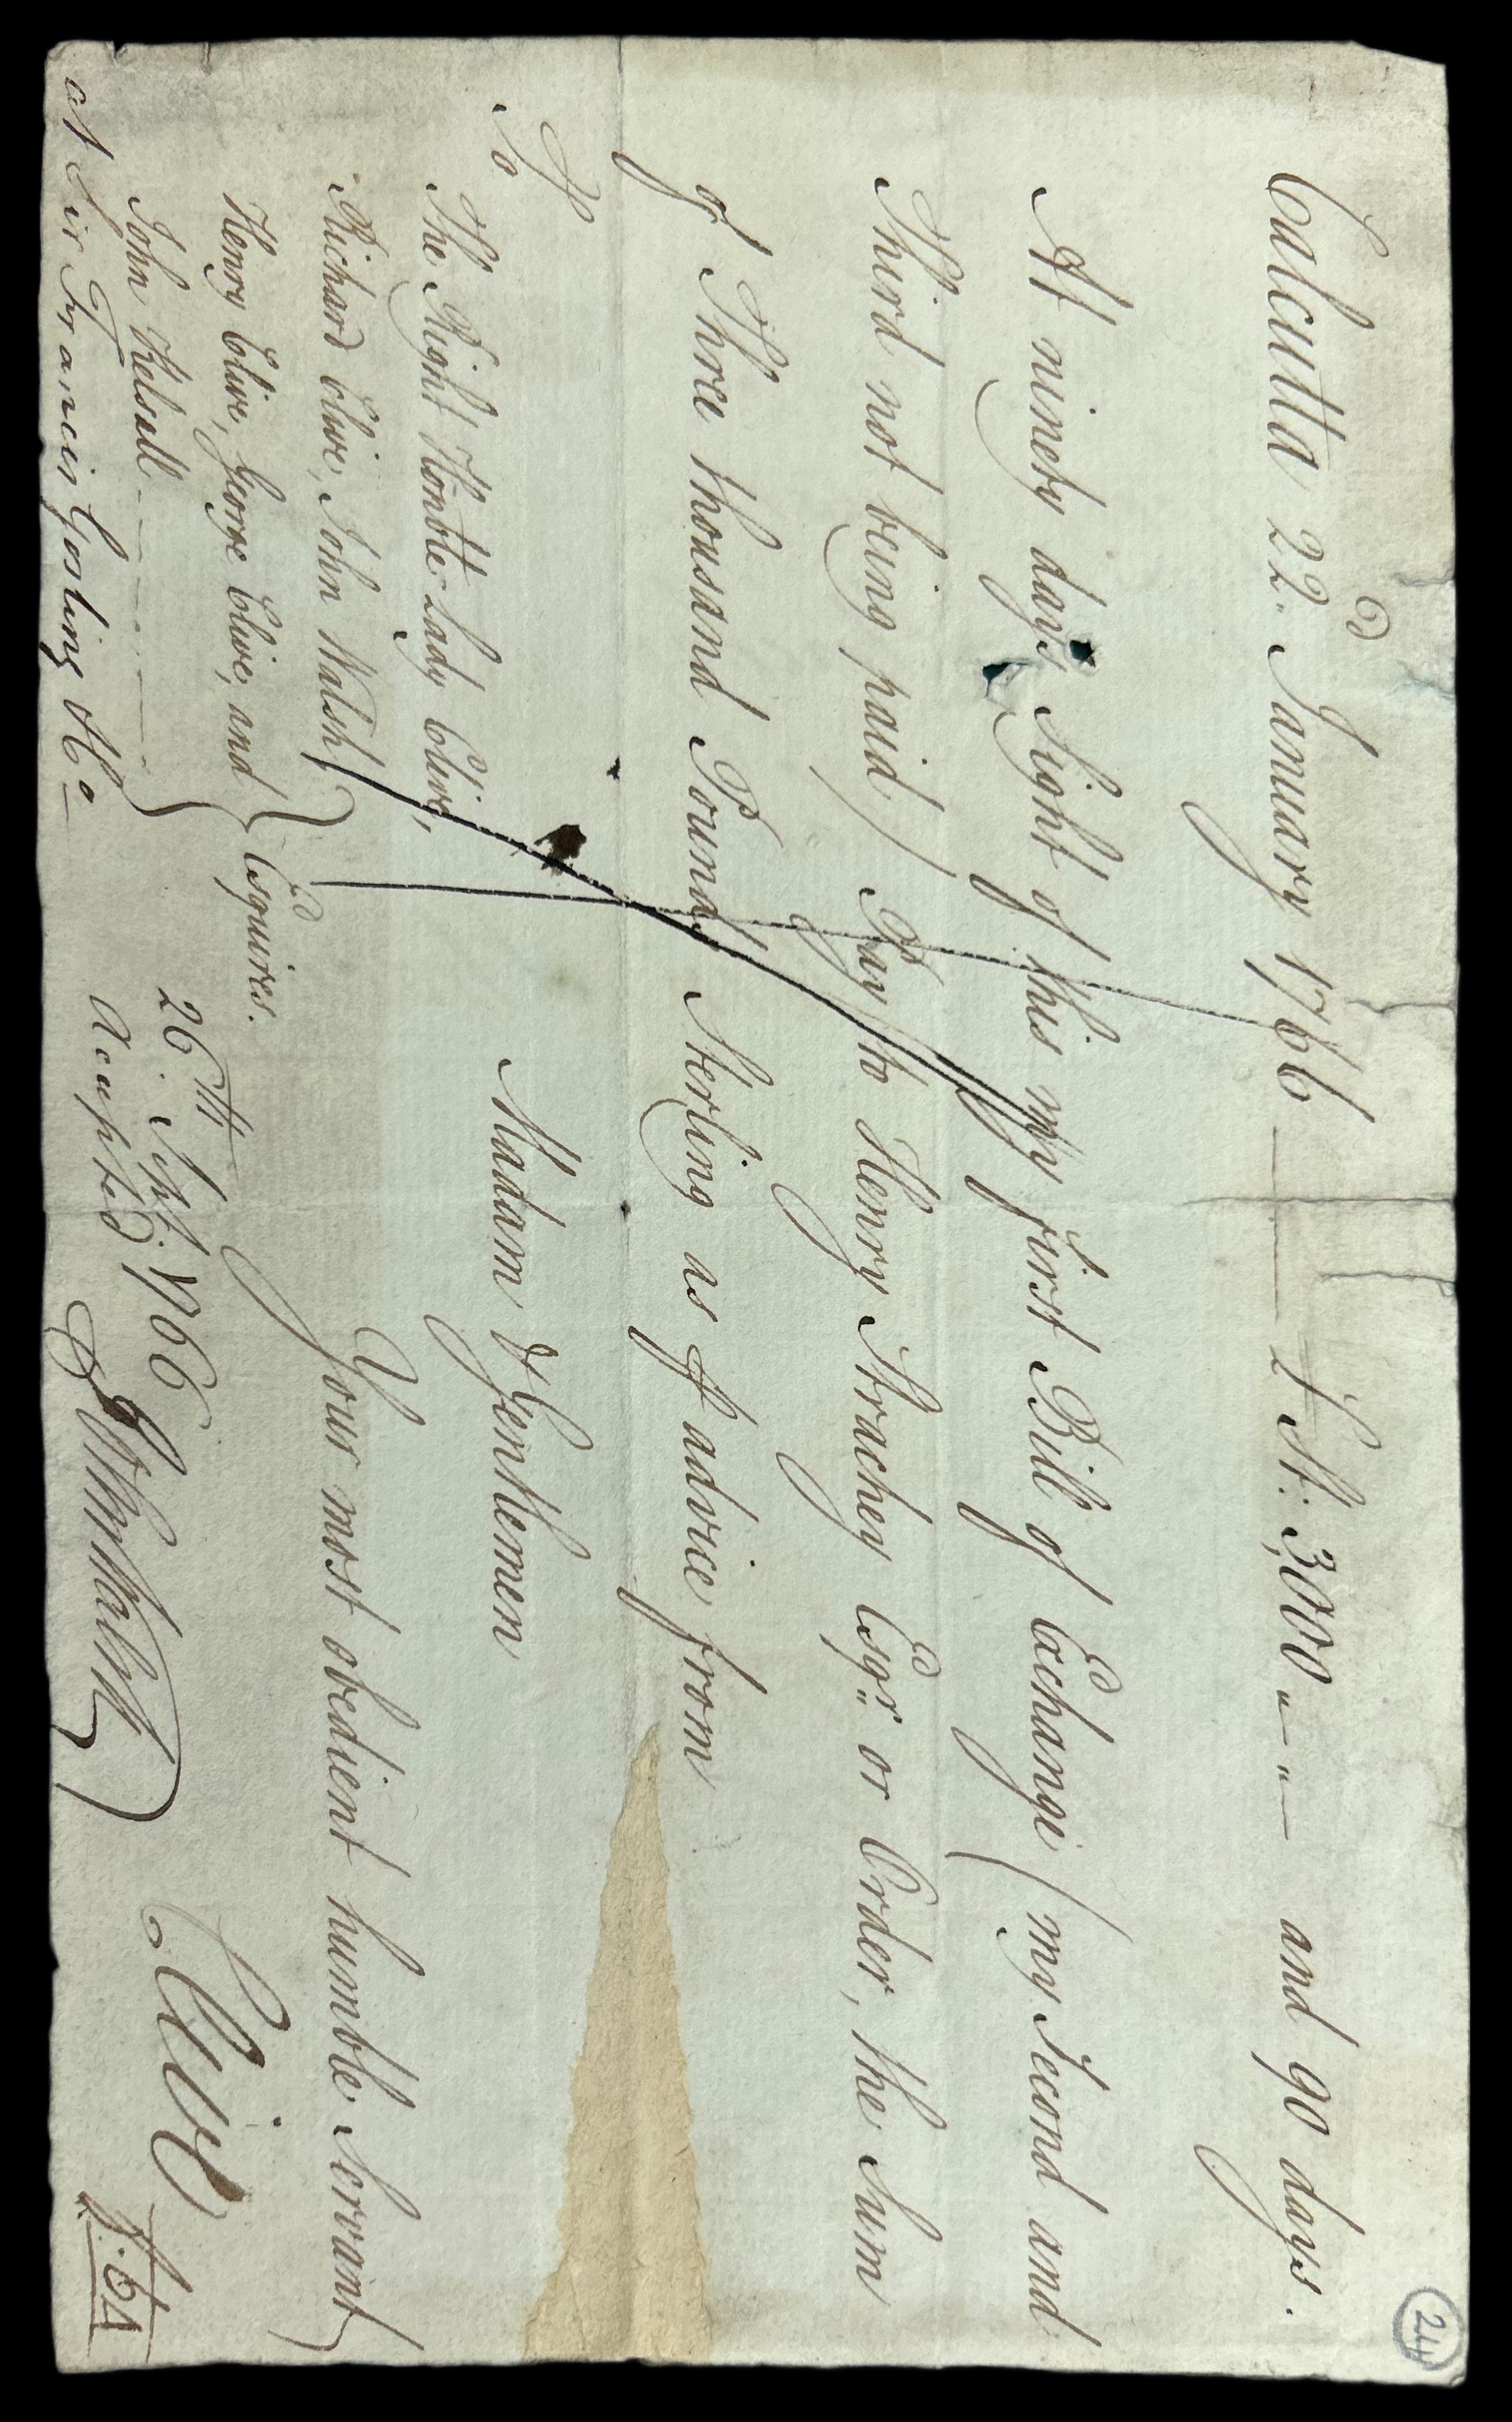 24
Calcutta 22. January 1766 £ St: 3,000 " — " — and 90 days.
At ninety days Sight of this my first Bill of Exchange (my Second and
Third not being paid) Pay to Henry Strachey Esqr. or Order, the Sum
of Three thousand Pounds Sterling as ⅌ advice from
Madam & Gentlemen
Your most obedient humble Servant
Clive
To
The Right Honble. Lady Clive,
Richard Clive, John Walsh
Henry Clive, George Clive, and
John Kelsall
Esquires.
at Sir Francis Gosling &Co
26th. Sept. 1766
Accepted
JWalsh
f. 64